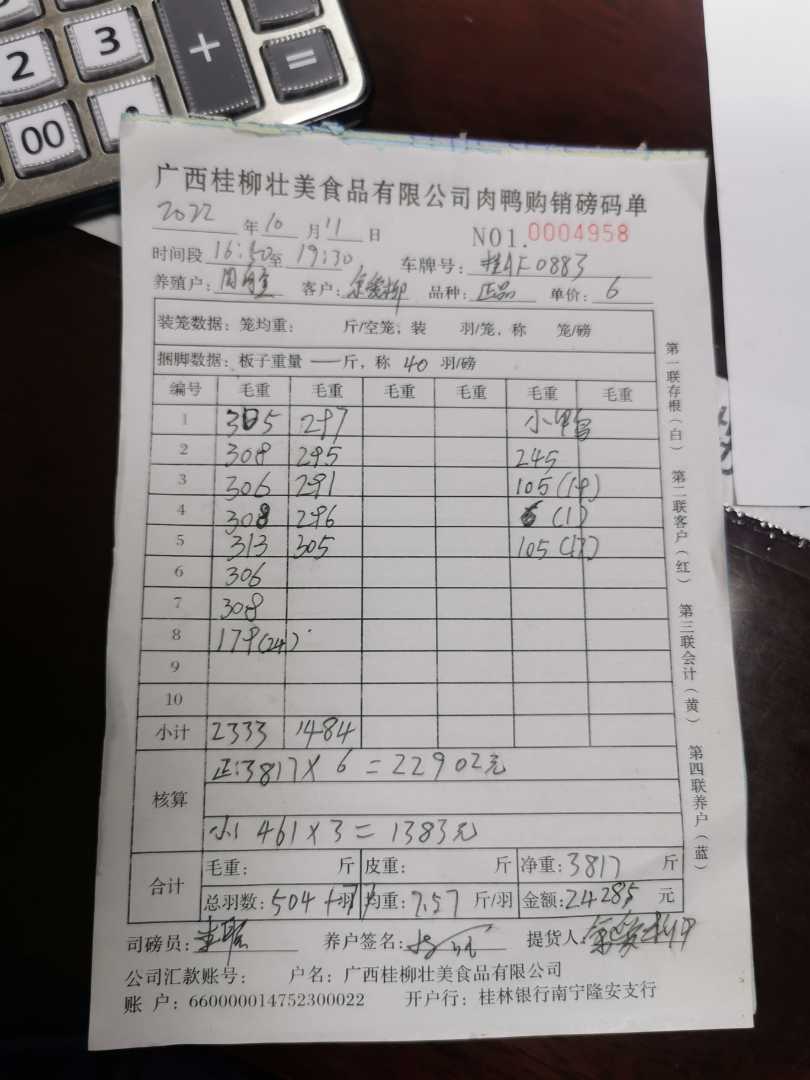 2 3 + =
00 .
广西桂柳壮美食品有限公司肉鸭购销磅码单
2022 年 10 月 11 日 NO1.0004958
时间段 16:50 至 19:30 车牌号: 桂AF0883
养殖户: 客户: 品种: 正品 单价: 6
装笼数据: 笼均重: 斤/空笼, 装 羽/笼, 称 笼/磅
捆脚数据: 板子重量 — 斤, 称 40 羽/磅
编号 毛重 毛重 毛重 毛重 毛重 毛重
1 305 297 小鸭
2 308 295 245
3 306 291 105(19)
4 308 296 6(1)
5 313 305 105(17)
6 306
7 308
8 179(24)
9
10
小计 2333 1484
核算
正:3817×6=22902元
小 461×3=1383元
合计
毛重: 斤 皮重: 斤 净重: 3817 斤
总羽数: 504 羽 均重: 7.57 斤/羽 金额: 24285 元
司磅员: 养户签名: 提货人:
公司汇款账号: 户名: 广西桂柳壮美食品有限公司
账 户: 660000014752300022 开户行: 桂林银行南宁隆安支行
第一联存根(白) 第二联客户(红) 第三联会计(黄) 第四联养户(蓝)